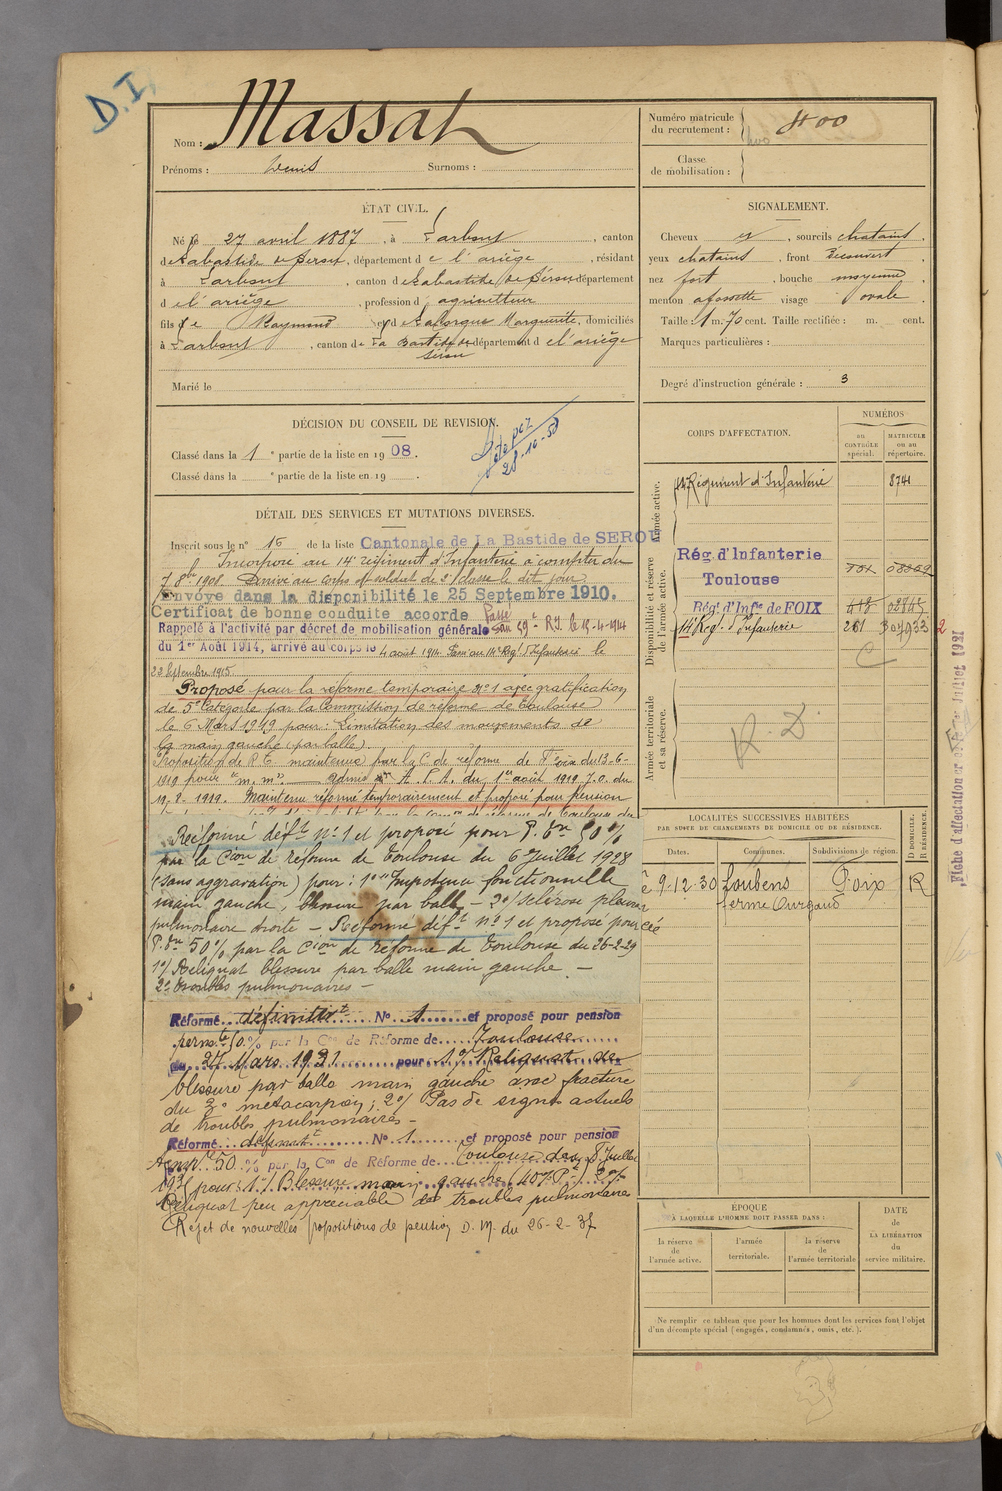 D.I.
Nom : Massat
Prénoms : Denis Surnoms :
Numéro matricule du recrutement : 400
Classe de mobilisation :
ÉTAT CIVIL.
Né le 27 avril 1887, à Larbont, canton
de Labastide de Sérou, département de l'ariège, résidant
à Larbont, canton de Labastide de Sérou département
de l'ariège, profession d'agriculteur
fils de Raymond et de Laborgue Marguerite, domiciliés
à Larbont, canton de La Bastide de Sérou département de l'ariège
Marié le
SIGNALEMENT.
Cheveux et, sourcils chatains,
yeux chatains, front découvert,
nez fort, bouche moyenne,
menton a fossette visage ovale
Taille : 1 m. 70 cent. Taille rectifiée : m. cent.
Marques particulières :
Degré d'instruction générale : 3
DÉCISION DU CONSEIL DE REVISION.
Classé dans la 1e partie de la liste en 1908.
Classé dans la e partie de la liste en 19 .
28-10-58
DÉTAIL DES SERVICES ET MUTATIONS DIVERSES.
Inscrit sous le n° 16 de la liste Cantonale de La Bastide de SEROU
Incorporé au 14e régiment d'Infanterie à compter du
7 8bre 1908. Arrivé au corps et soldat de 2e classe le dit jour
Envoyé dans la disponibilité le 25 Septembre 1910.
Certificat de bonne conduite accordé
Passé au 59e R.I. le 15-4-1914
Rappelé à l'activité par décret de mobilisation générale
du 1er Août 1914, arrivé au corps le 4 août 1914. Passé au 14e Régt d'Infanterie le
23 Septembre 1915
Proposé pour la réforme temporaire n°1 avec gratification
de 5e catégorie par la Commission de réforme de Toulouse
le 6 Mars 1919 pour : Limitation des mouvements de
la main gauche (par balle).
Proposition de R.T. maintenue par la C. de réforme de Foix du 13-6-
1919 pour m. m. admis A.F.A. du 1er août 1919 J.O. du
19-8-1919. Maintenu réformé temporairement et proposé pour pension
Réformé déf.t N°1 et proposé pour P. dve 50 %
par la Con de réforme de Toulouse du 6 Juillet 1928
(sans aggravation) pour : 1° Impotence fonctionnelle
main gauche, blessure par balle - 2°/ sclérose pleuro
pulmonaire droite - Réformé déf.t n°1 et proposé pour
P. dve 50% par la Cion de réforme de Toulouse du 26-2-29
1°/ Reliquat blessure par balle main gauche. -
2° troubles pulmonaires -
Réformé définitivt N° 1 et proposé pour pension
permte 50 % par la Con de Réforme de Toulouse
du 27 Mars 1931 pour 1°/ Reliquat de
blessure par balle main gauche avec fracture
du 3e métacarpien ; 2°/ Pas de signes actuels
de troubles pulmonaires -
Réformé définitt N° 1 et proposé pour pension
50 % par la Con de Réforme de Toulouse du 8 Juillet
pour : 1°/ Blessure main gauche 40% 2°/
Reliquat peu appréciable de troubles pulmonaires
Rejet de nouvelles propositions de pension D.M. du 26-2-37
CORPS D'AFFECTATION.
NUMÉROS
au CONTRÔLE spécial.
MATRICULE ou au répertoire.
Armée active.
14e Régiment d'Infanterie 8741
Disponibilité et réserve de l'armée active.
Rég. d'Infanterie
Toulouse
Rég. d'Infie de FOIX
14e Régt d'Infanterie 261
C
Armée territoriale et sa réserve.
R.D.
LOCALITÉS SUCCESSIVES HABITÉES
PAR SUITE DE CHANGEMENTS DE DOMICILE OU DE RÉSIDENCE.
Dates. Communes. Subdivisions de région. D DOMICILE. R RÉSIDENCE.
9-12-30 Loubens Foix R
ferme Ourgaud
ÉPOQUE
À LAQUELLE L'HOMME DOIT PASSER DANS :
la réserve de l'armée active.
l'armée territoriale.
la réserve de l'armée territoriale
DATE de LA LIBÉRATION du service militaire.
Ne remplir ce tableau que pour les hommes dont les services font l'objet
d'un décompte spécial (engagés, condamnés, omis, etc.).